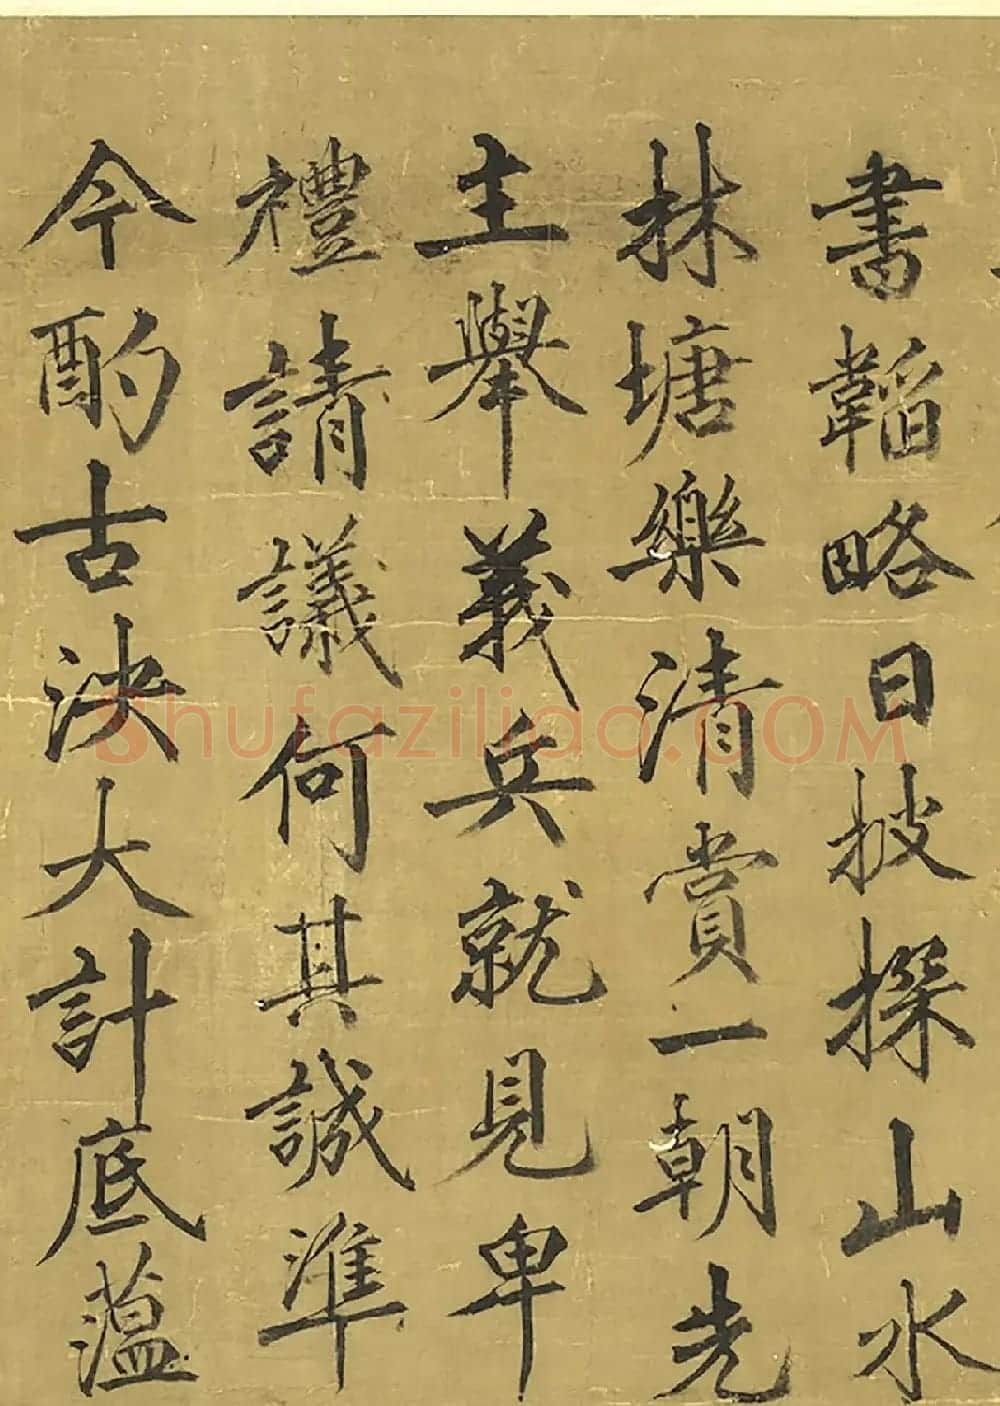 書韜略日披探山水
林塘樂清賞一朝先
主舉義兵就見卑
禮請議何其誠準
今酌古決大計底蕰
shufaziliao.COM